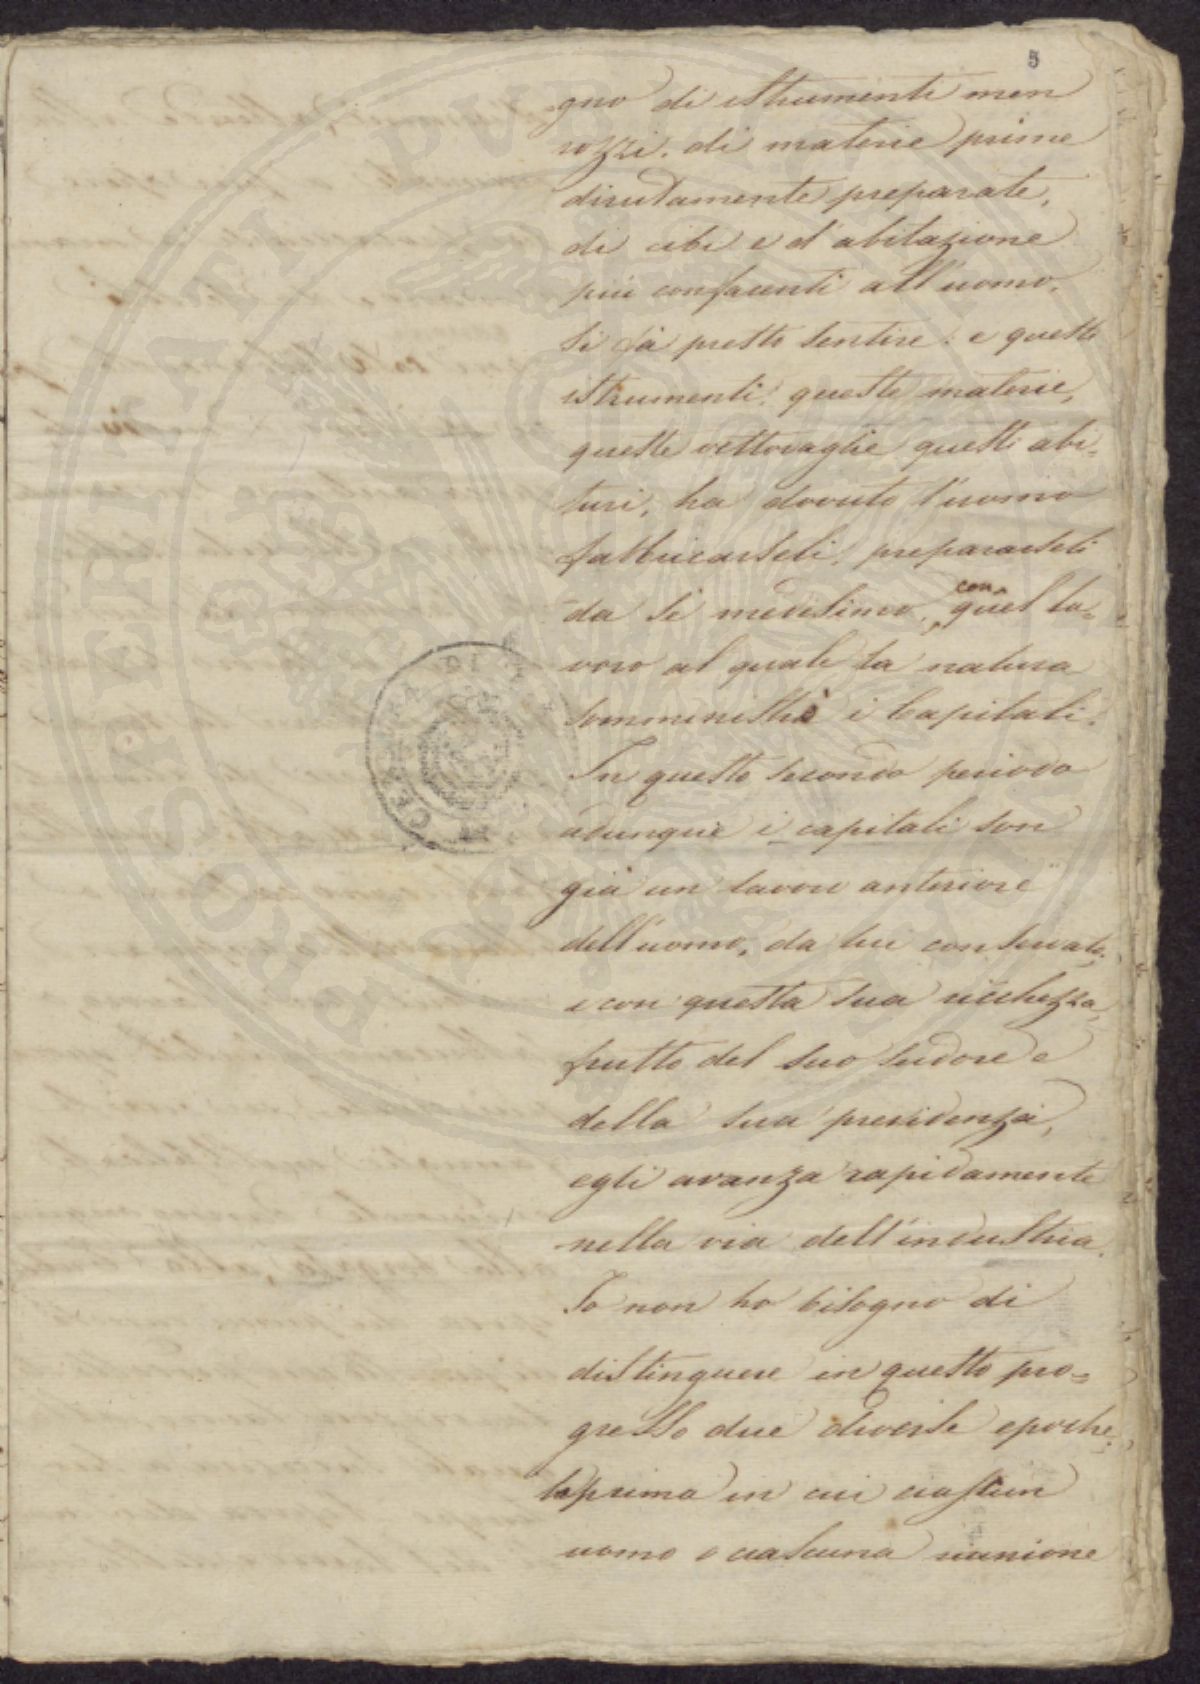 5
gno di istrumenti men
rozzi, di materie prime
preparate,
di cibi e d'abitazione
più confacenti all'uomo,
si fa presto sentire: e questi
istrumenti, queste materie,
queste vettovaglie, questi abi=
turi, ha dovuto l'uomo
fabbricarseli, prepararseli
da se medesimo, con quel la=
voro al quale la natura
somministrò i Capitali.
In questo secondo periodo
adunque i capitali son
già un lavoro anteriore
dell'uomo, da lui conservato,
e con questa sua ricchezza,
frutto del suo sudore e
della sua previdenza,
egli avanza rapidamente
nella via dell'industria.
Io non ho bisogno di
distinguere in questo pro=
gresso due diverse epoche,
la prima in cui ciascun
uomo o ciascuna riunione
PROSPERITATI PVBLICAE